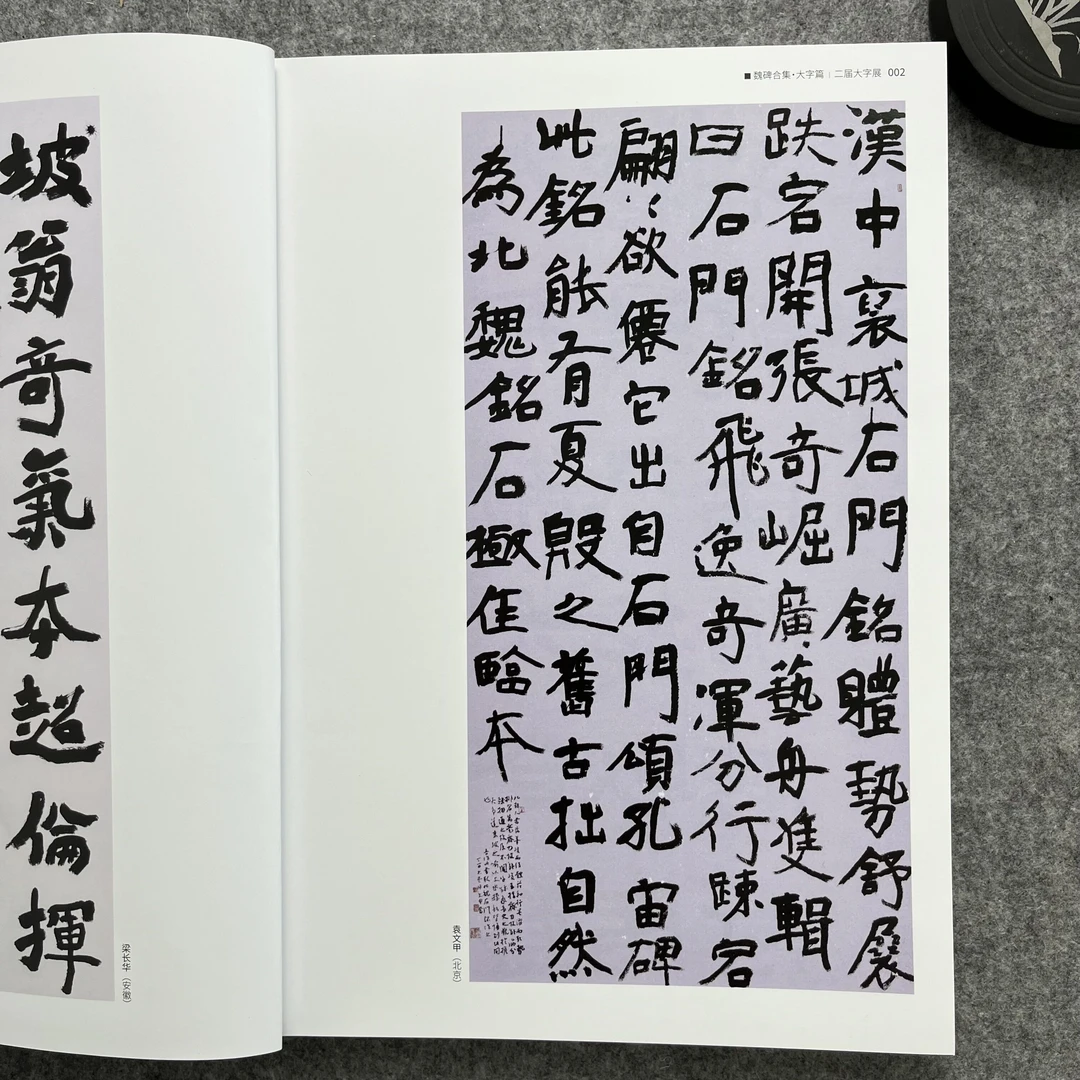 魏碑合集·大字篇 | 二届大字展 002
漢中裏城石門銘體勢舒展
跌宕開張奇崛廣藝舟雙輯
曰石門銘飛逸奇渾分行疎宕
翩〻欲僊它出自石門頌孔宙碑
此銘能有夏殷之舊古拙自然
為北魏銘石極佳臨本
袁文甲（北京）
坡翁奇氣本超倫揮
梁长华（安徽）